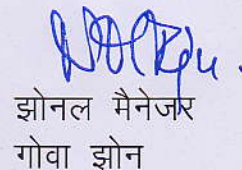 झोनल मैनेजर
गोवा झोन